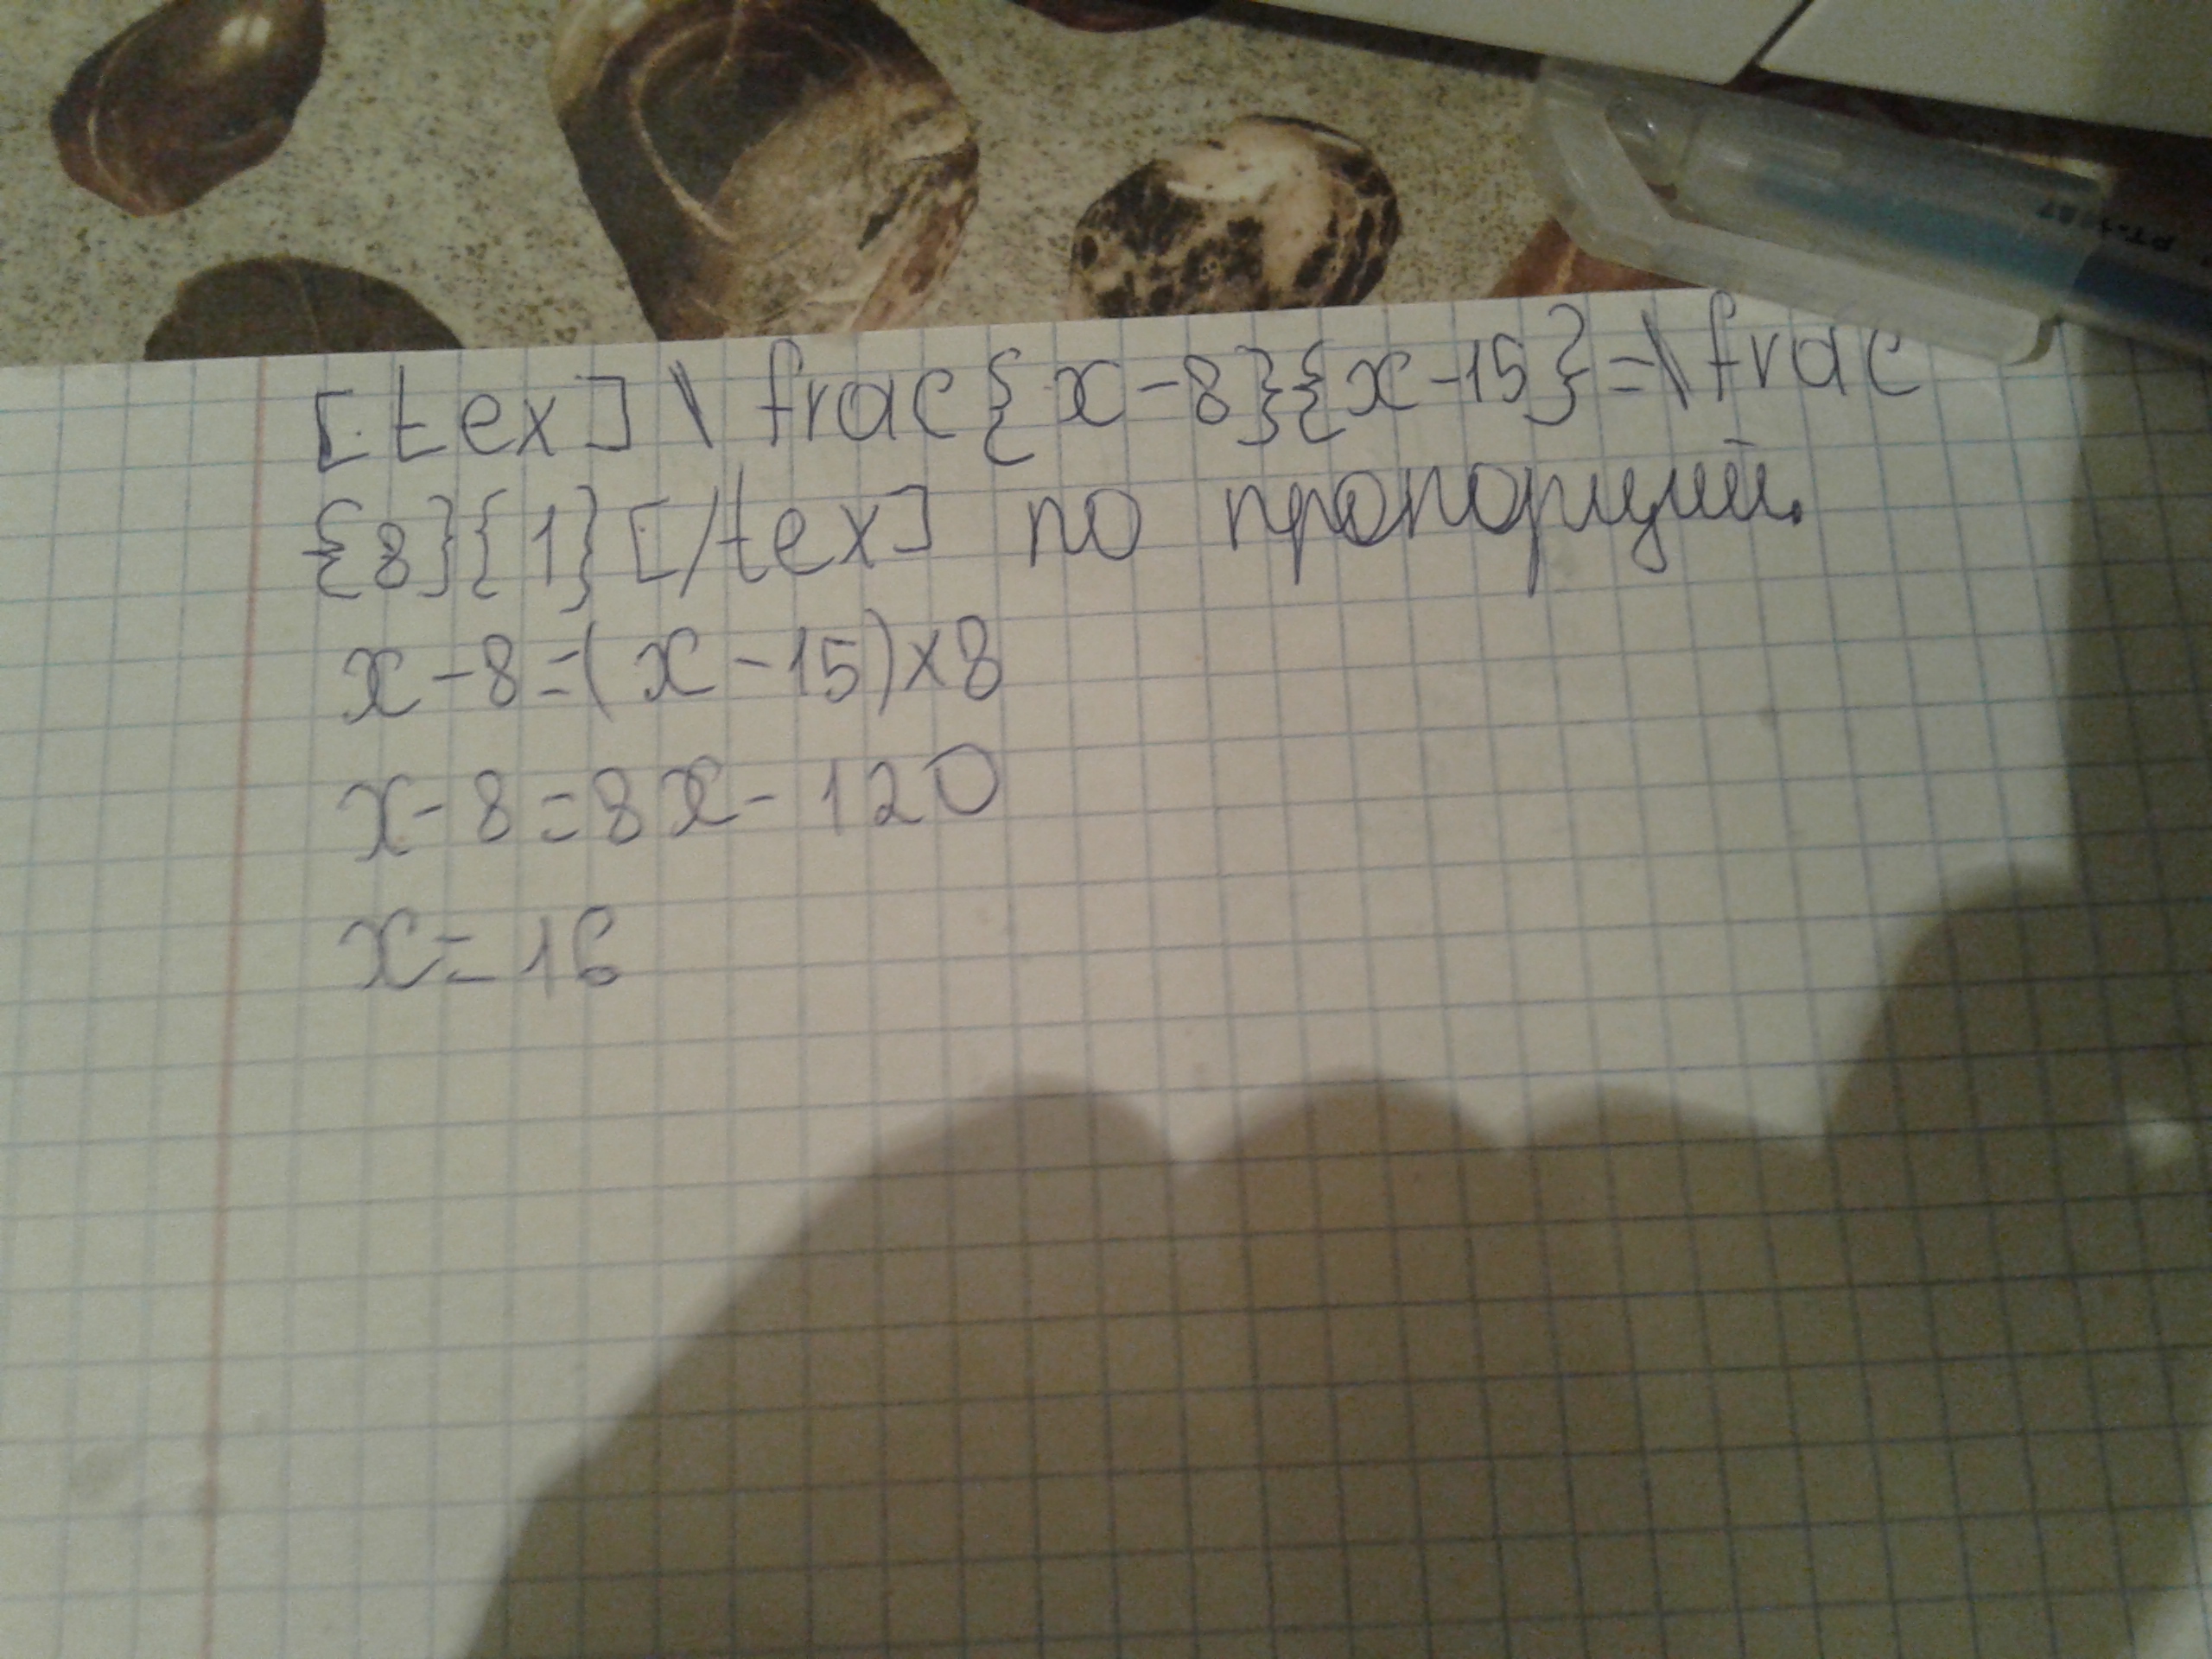 [tex]\frac{x-8}{x-15}=\frac
{8}{1}[/tex] по пропорций.
x-8=(x-15)×8
x-8=8x-120
x=16